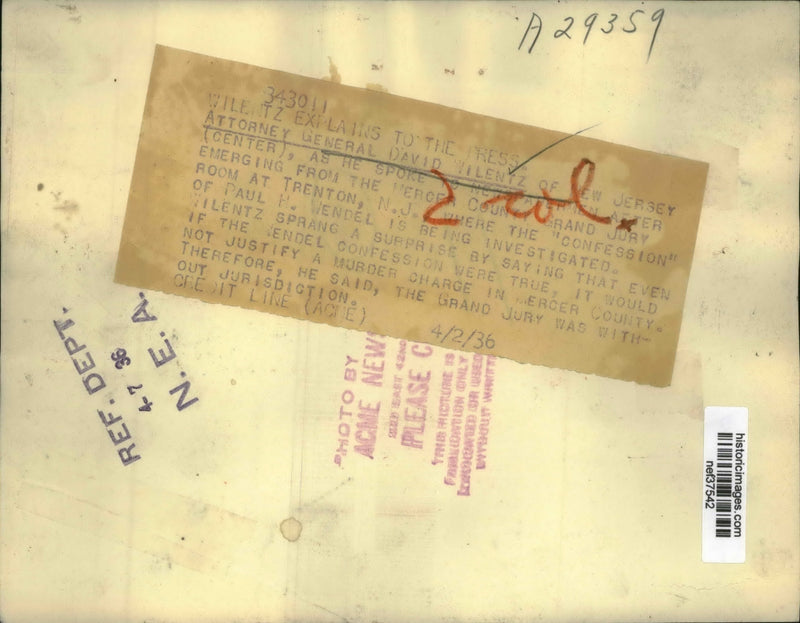 A29359
343011
WILENTZ EXPLAINS TO THE PRESS
ATTORNEY GENERAL DAVID WILENTZ OF NEW JERSEY
(CENTER), AS HE SPOKE AFTER
EMERGING FROM THE MERCER COUNTY GRAND JURY
ROOM AT TRENTON, N.J. WHERE THE "CONFESSION"
OF PAUL H. WENDEL IS BEING INVESTIGATED.
WILENTZ SPRANG A SURPRISE BY SAYING THAT EVEN
IF THE WENDEL CONFESSION WERE TRUE, IT WOULD
NOT JUSTIFY A MURDER CHARGE IN MERCER COUNTY.
THEREFORE, HE SAID, THE GRAND JURY WAS WITH-
OUT JURISDICTION.
CREDIT LINE (ACME) 4/2/36
2 col.
REF. DEPT.
4-7 36
N. E. A.
PHOTO BY
ACME NEWS
EAST 42ND
PLEASE C
THIS PICTURE IS
ONLY
OR USED
WITHOUT WRITT
historicimages.com
nef37542